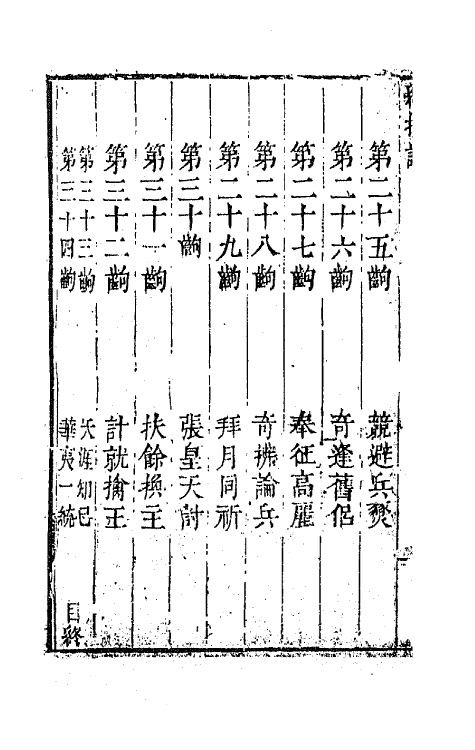 第二十五齣　競避兵燹
第二十六齣　奇逢舊侶
第二十七齣　奉征高麗
第二十八齣　奇擬論兵
第二十九齣　拜月同祈
第三十齣　張皇天討
第三十一齣　扶餘換主
第三十二齣　計就擒王
第三十三齣　天涯知己
第三十四齣　華夷一統
目終